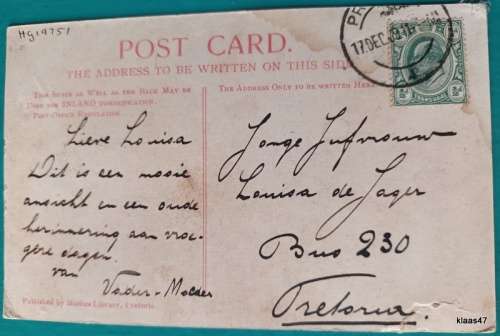 Hg19751
POST CARD.
THE ADDRESS TO BE WRITTEN ON THIS SIDE
This Space as Well as the Back May be
Used for INLAND Communication.
Post Office Regulation.
The Address Only to be Written Here
17 DEC
Lieve Louisa
Dit is een mooie
ansicht en een oude
herinnering aan vroe-
gere dagen.
van
Vader-Moeder
Jonge Jufvrouw
Louisa de Jager
Bus 230
Pretoria.
Published by Library, Pretoria.
klaas47